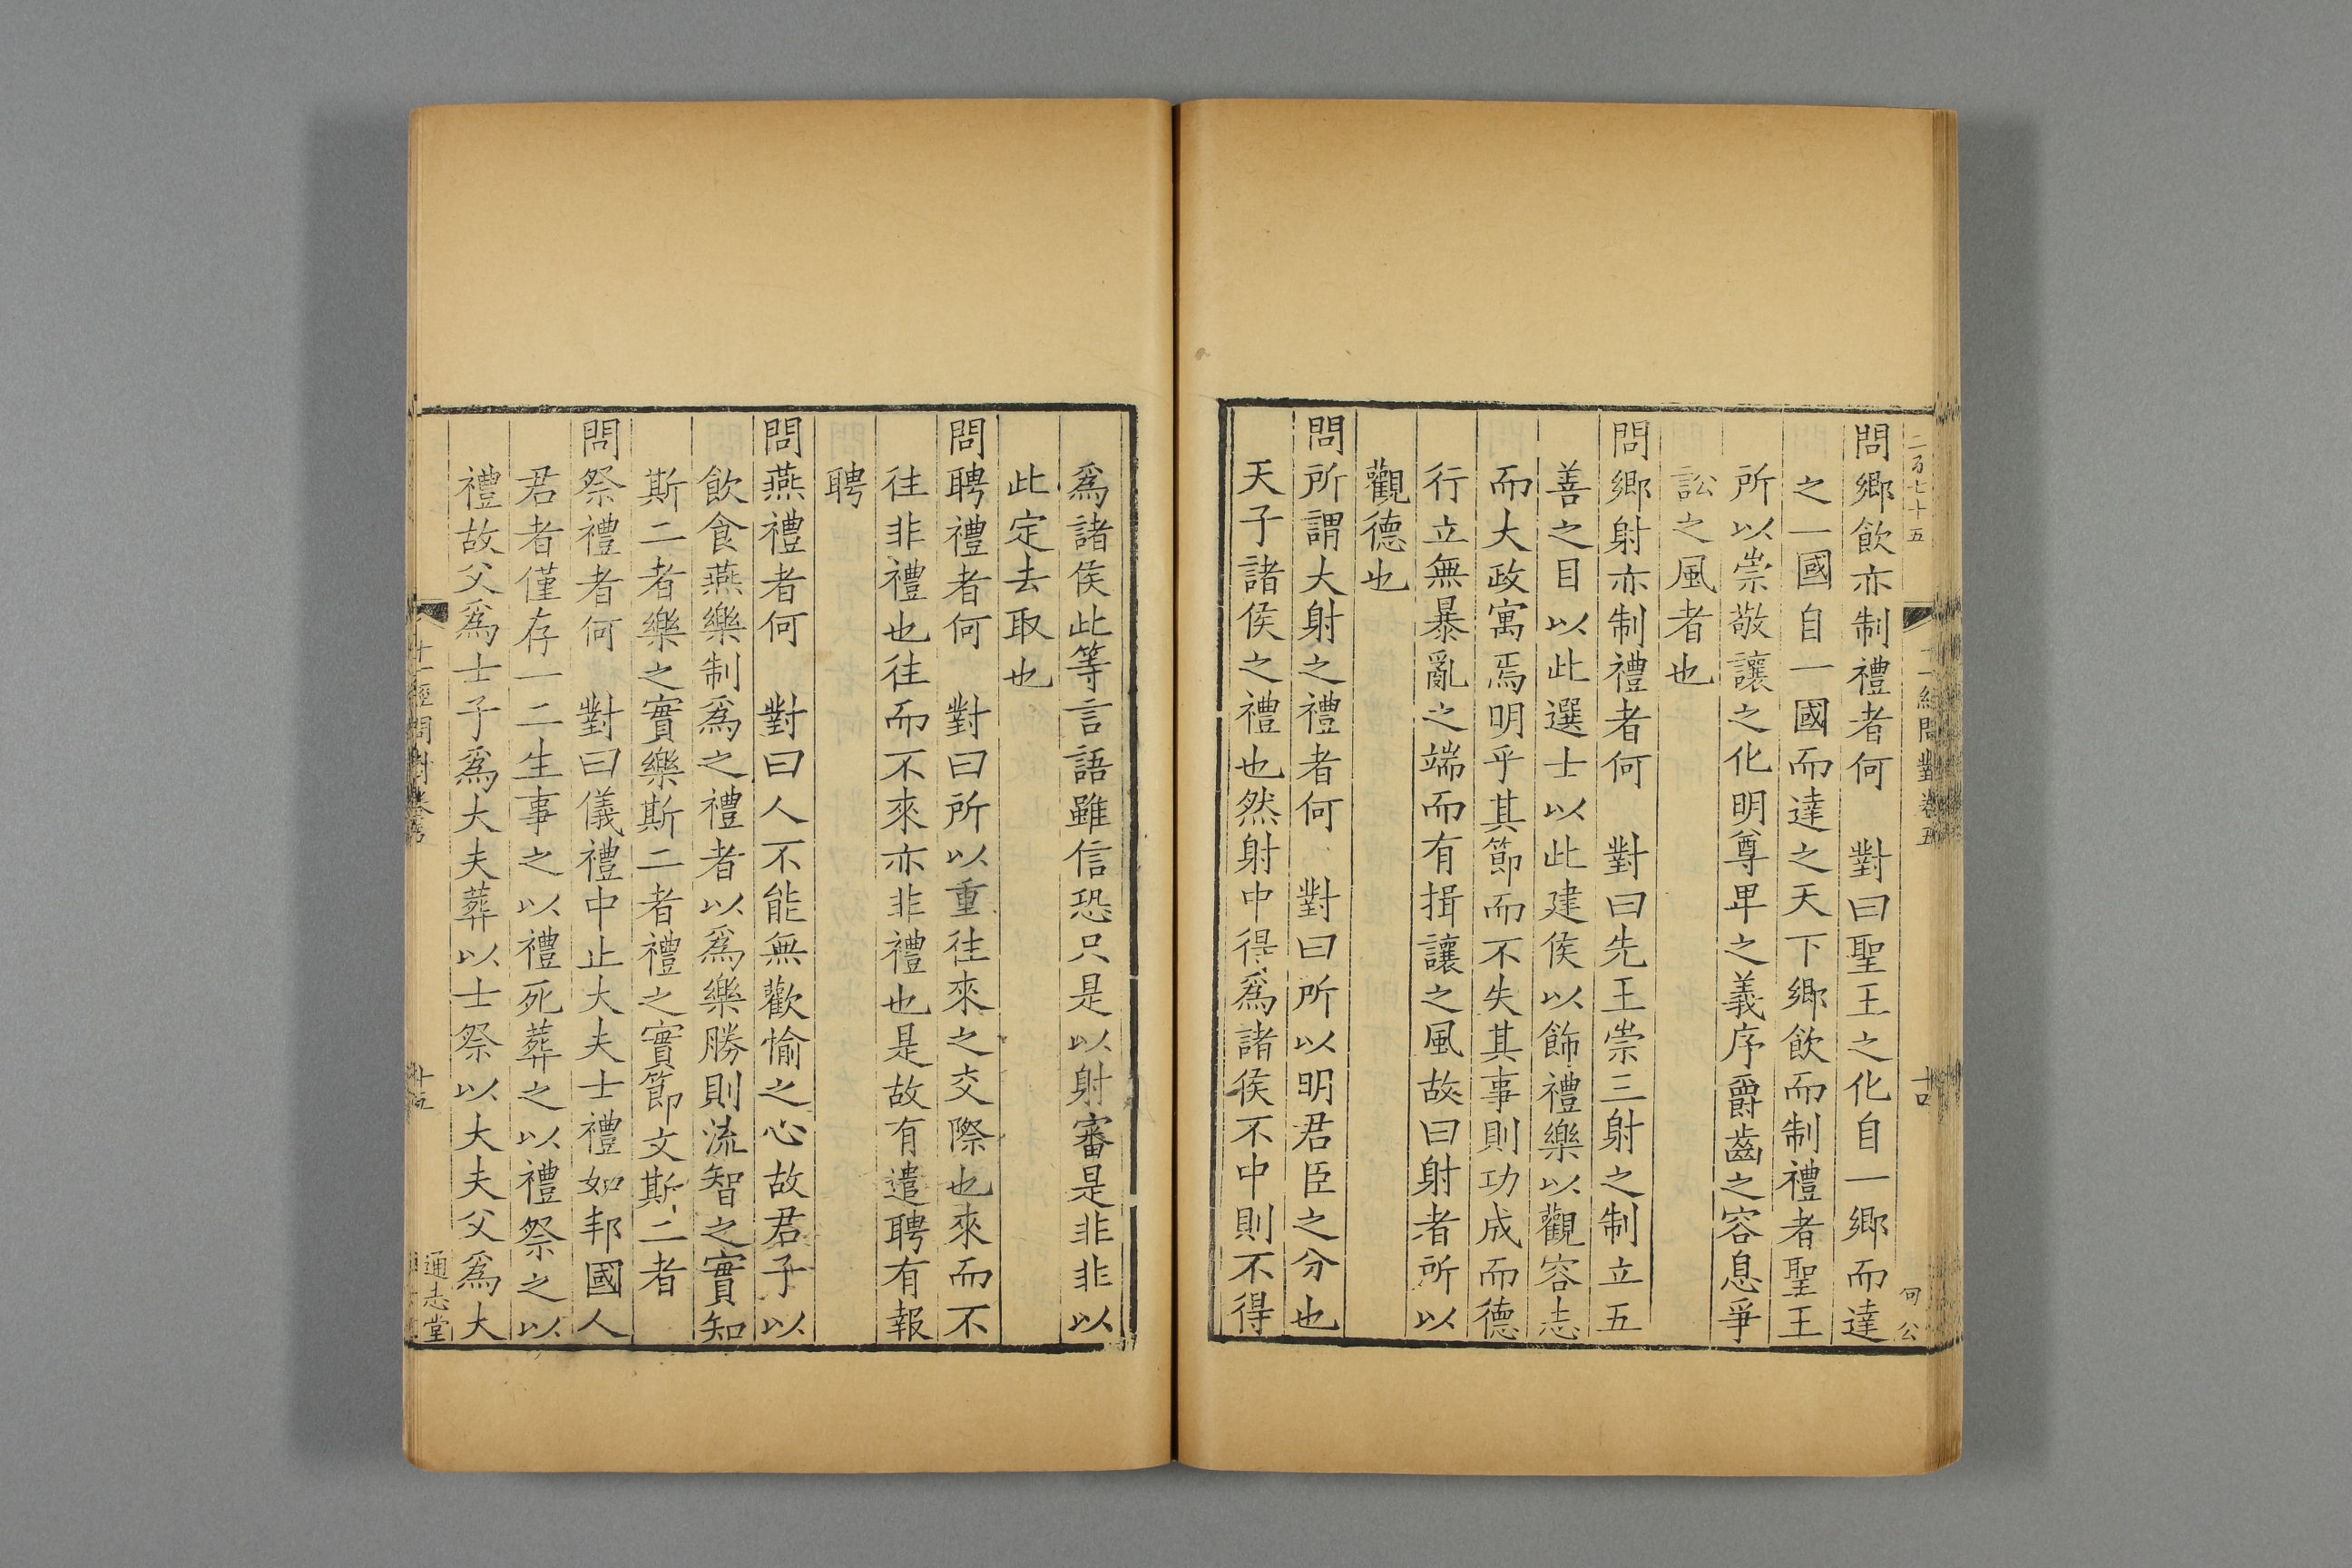 二百七十五
十一經問對卷五
十四
何公
問鄉飲亦制禮者何　對曰聖王之化自一鄉而達
之一國自一國而達之天下鄉飲而制禮者聖王
所以崇敬讓之化明尊卑之義序爵齒之容息爭
訟之風者也
問鄉射亦制禮者何　對曰先王崇三射之制立五
善之目以此選士以此建侯以飾禮樂以觀容志
而大政寓焉明乎其節而不失其事則功成而德
行立無暴亂之端而有揖讓之風故曰射者所以
觀德也
問所謂大射之禮者何　對曰所以明君臣之分也
天子諸侯之禮也然射中得爲諸侯不中則不得
爲諸侯此等言語雖信恐只是以射審是非非以
此定去取也
問聘禮者何　對曰所以重往來之交際也來而不
往非禮也往而不來亦非禮也是故有遣聘有報
聘
問燕禮者何　對曰人不能無歡愉之心故君子以
飲食燕樂制爲之禮者以爲樂勝則流智之實知
斯二者樂之實樂斯二者禮之實節文斯二者
問祭禮者何　對曰儀禮中止大夫士禮如邦國人
君者僅存一二生事之以禮死葬之以禮祭之以
禮故父爲士子爲大夫葬以士祭以大夫父爲大
十一經問對卷五
十五
通志堂